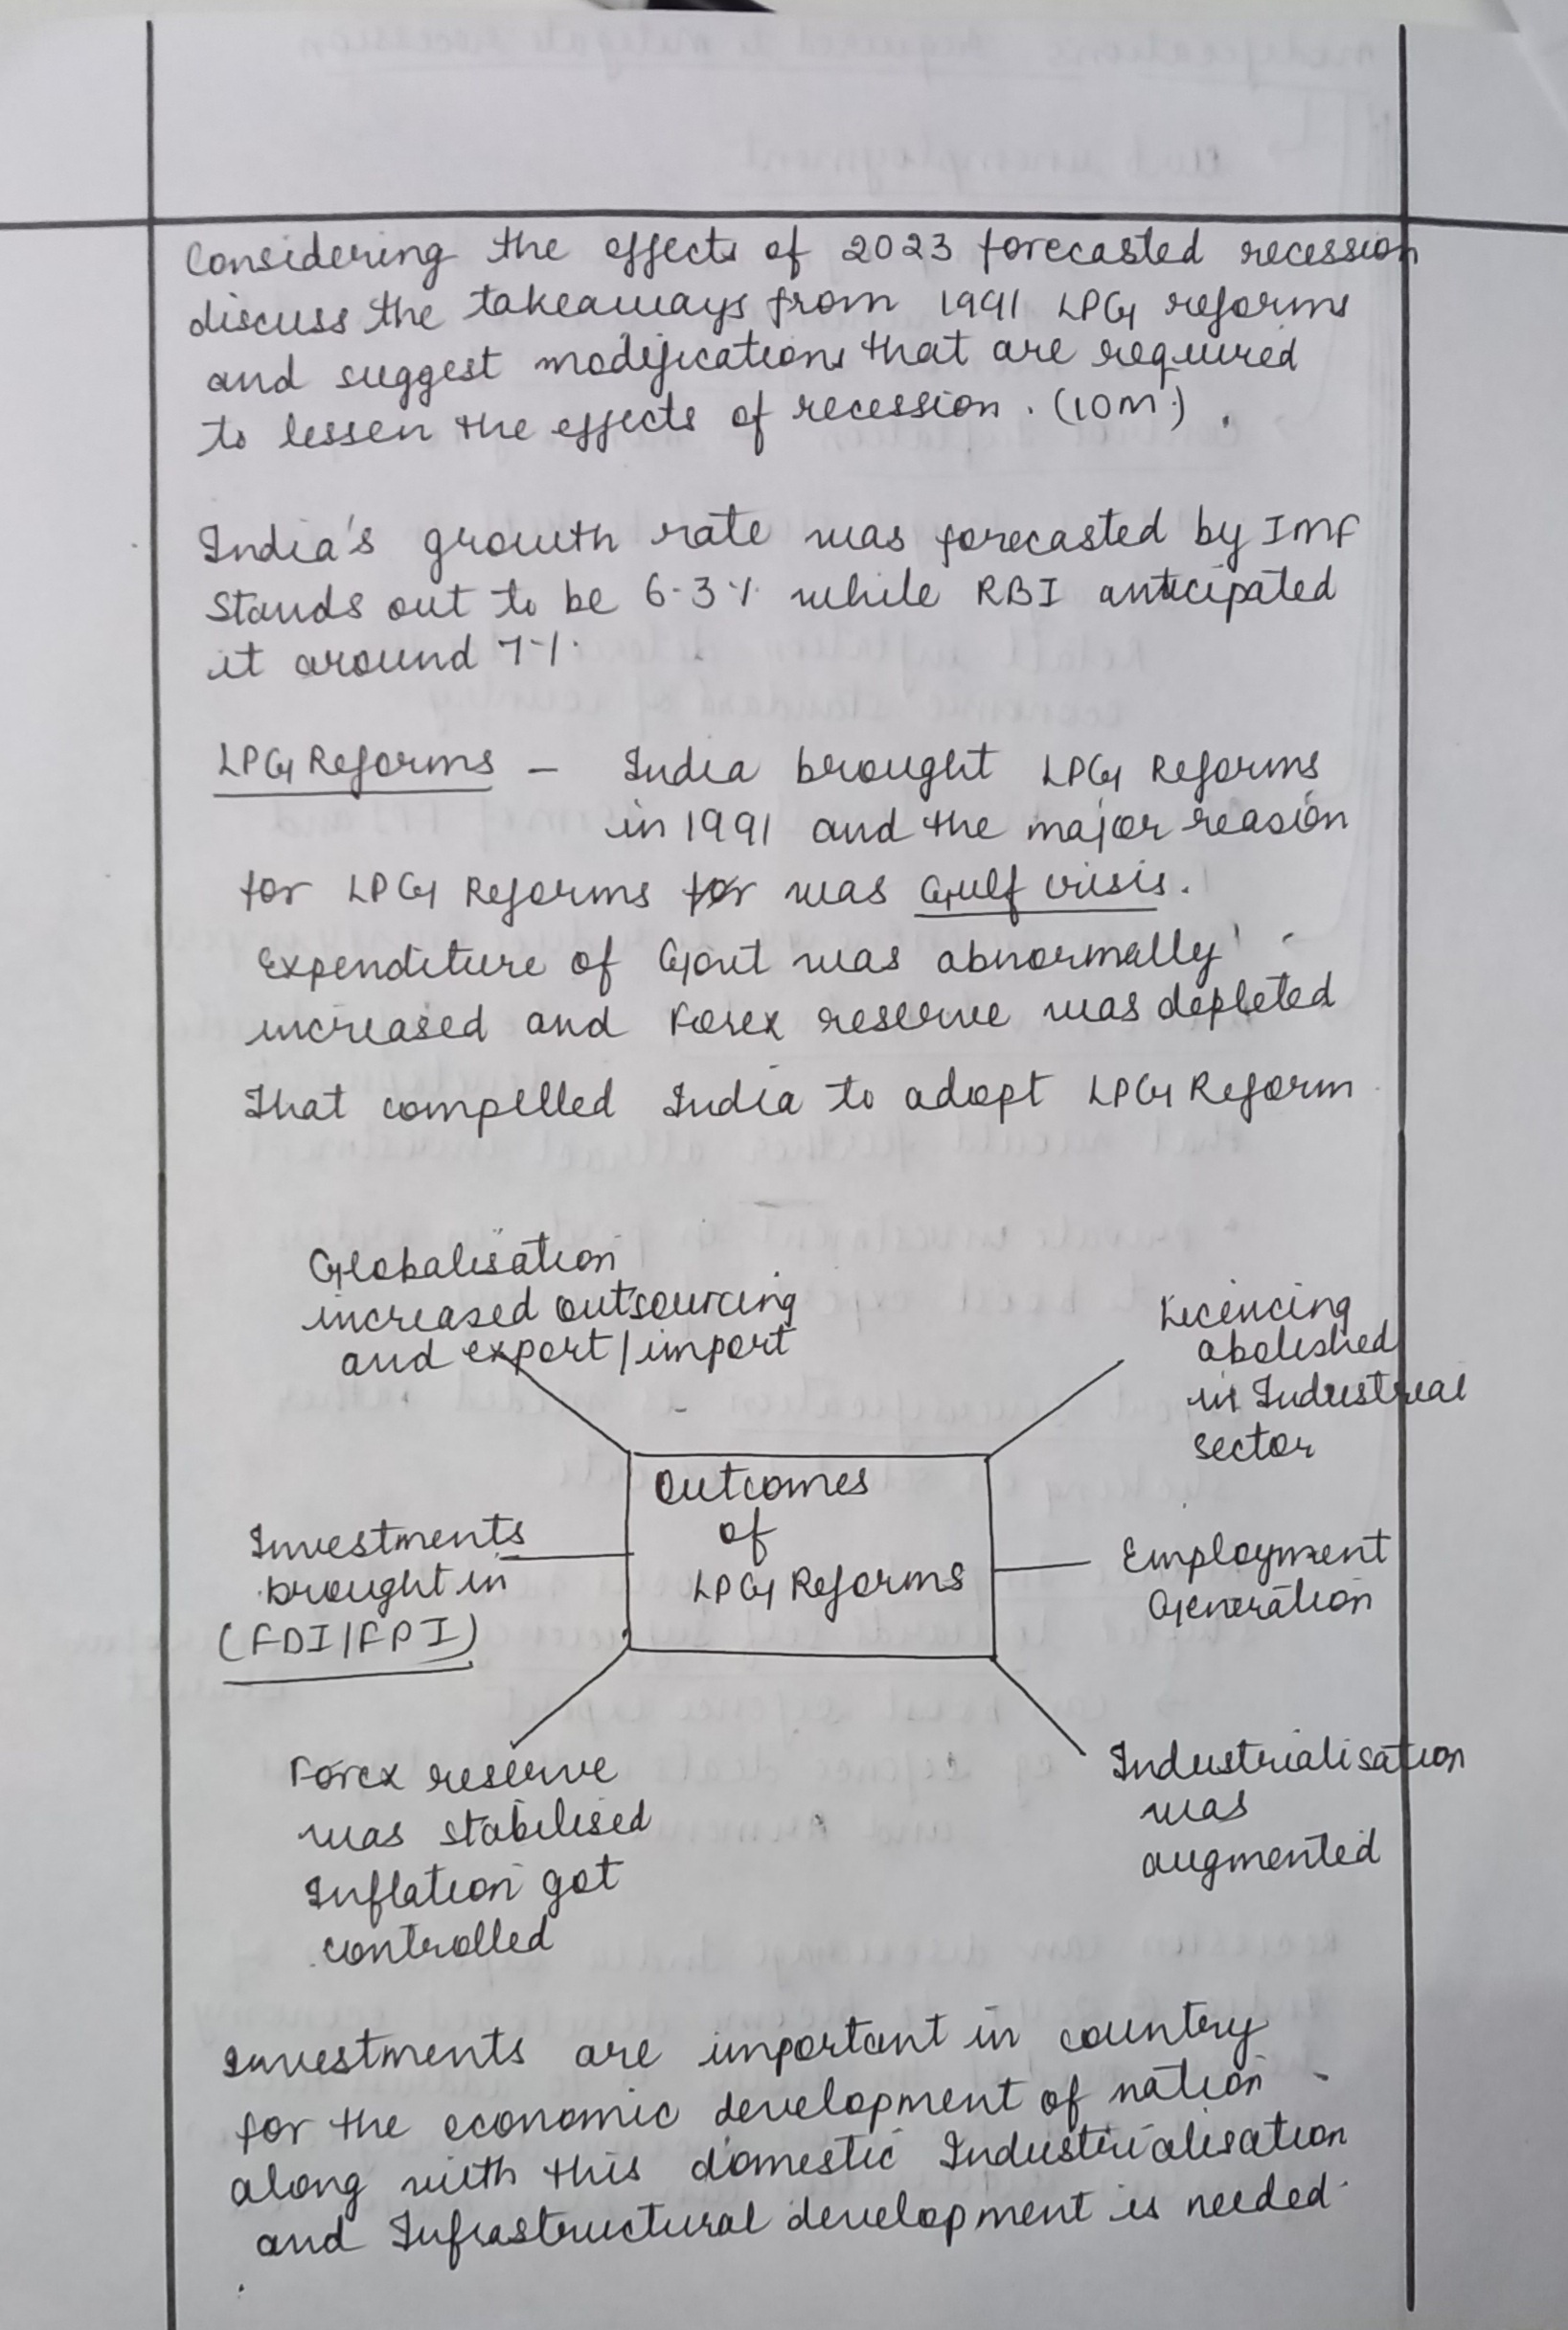 Considering the effects of 2023 forecasted recession
discuss the takeaways from 1991 LPG reforms
and suggest modifications that are required
to lessen the effects of recession. (10m.).
India's growth rate was forecasted by IMF
stands out to be 6.3% while RBI anticipated
it around 7%.
LPG Reforms - India brought LPG Reforms
in 1991 and the major reason
for LPG Reforms for was Gulf crisis.
Expenditure of Govt was abnormally
increased and Forex reserve was depleted
That compelled India to adopt LPG Reform
Globalisation
increased outsourcing
and export/import
Licencing
abolished
in Industrial
sector
Outcomes
of
LPG Reforms
Investments
brought in
(FDI/FPI)
Employment
Generation
Forex reserve
was stabilised
Inflation got
controlled
Industrialisation
was
augmented
Investments are important in country
for the economic development of nation
along with this domestic Industrialisation
and Infrastructural development is needed.